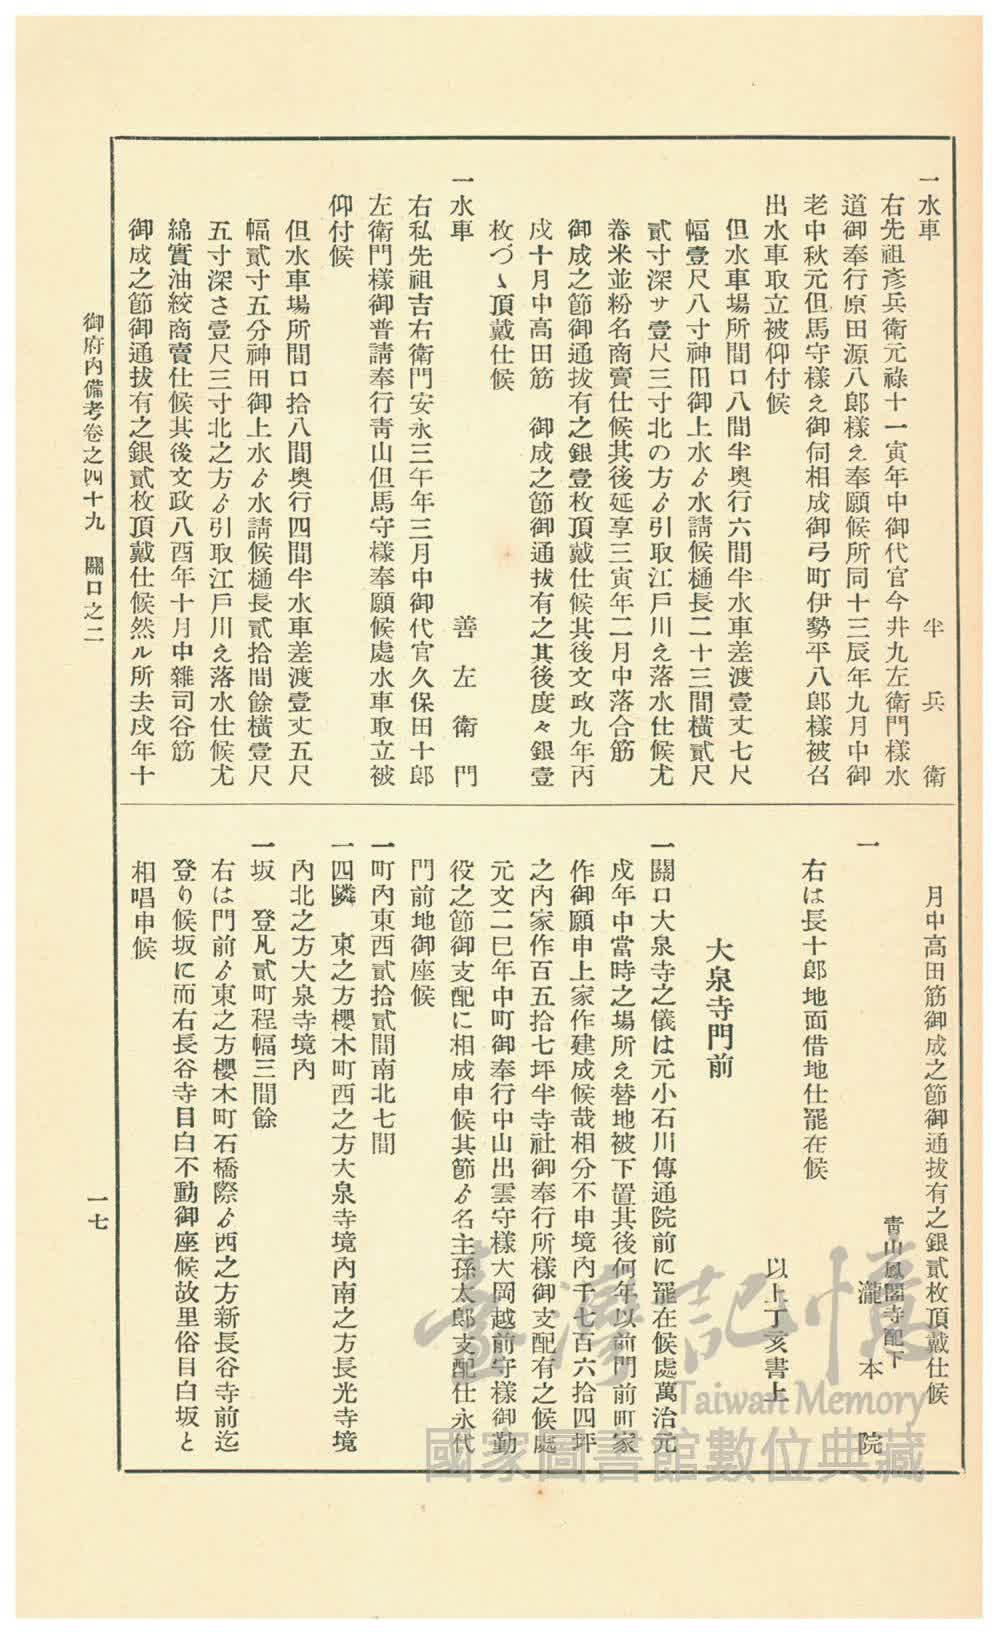 一水車　半兵衛
右先祖彥兵衛元祿十一寅年中御代官今井九左衛門樣水
道御奉行原田源八郎樣え奉願候所同十三辰年九月中御
老中秋元但馬守樣え御伺相成御弓町伊勢平八郎樣被召
出水車取立被仰付候
但水車場所間口八間半奧行六間半水車差渡壹丈七尺
幅壹尺八寸神田御上水ゟ水請候樋長二十三間橫貳尺
貳寸深サ壹尺三寸北の方ゟ引取江戶川え落水仕候尤
舂米並粉名商賣仕候其後延享三寅年二月中落合筋
御成之節御通拔有之銀壹枚頂戴仕候其後文政九年丙
戌十月中高田筋　御成之節御通拔有之其後度々銀壹
枚づゝ頂戴仕候
一水車　善左衛門
右私先祖吉右衛門安永三午年三月中御代官久保田十郎
左衛門樣御普請奉行靑山但馬守樣奉願候處水車取立被
仰付候
但水車場所間口拾八間奧行四間半水車差渡壹丈五尺
幅貳寸五分神田御上水ゟ水請候樋長貳拾間餘橫壹尺
五寸深さ壹尺三寸北之方ゟ引取江戶川え落水仕候尤
綿實油絞商賣仕候其後文政八酉年十月中雜司谷筋
御成之節御通拔有之銀貳枚頂戴仕候然ル所去戌年十
月中高田筋御成之節御通拔有之銀貳枚頂戴仕候
靑山鳳閣寺配下
一　瀧本院
右は長十郎地面借地仕罷在候
以上丁亥書上
大泉寺門前
一關口大泉寺之儀は元小石川傳通院前に罷在候處萬治元
戌年中當時之場所え替地被下置其後何年以前門前町家
作御願申上家作建成候哉相分不申境內千七百六拾四坪
之內家作百五拾七坪半寺社御奉行所樣御支配有之候處
元文二巳年中町御奉行中山出雲守樣大岡越前守樣御勤
役之節御支配に相成申候其節ゟ名主孫太郎支配仕永代
門前地御座候
一町內東西貳拾貳間南北七間
一四隣　東之方櫻木町西之方大泉寺境內南之方長光寺境
內北之方大泉寺境內
一坂　登凡貳町程幅三間餘
右は門前ゟ東之方櫻木町石橋際ゟ西之方新長谷寺前迄
登り候坂に而右長谷寺目白不動御座候故里俗目白坂と
相唱申候
御府內備考卷之四十九　關口之二
一七
臺灣記憶
Taiwan Memory
國家圖書館數位典藏